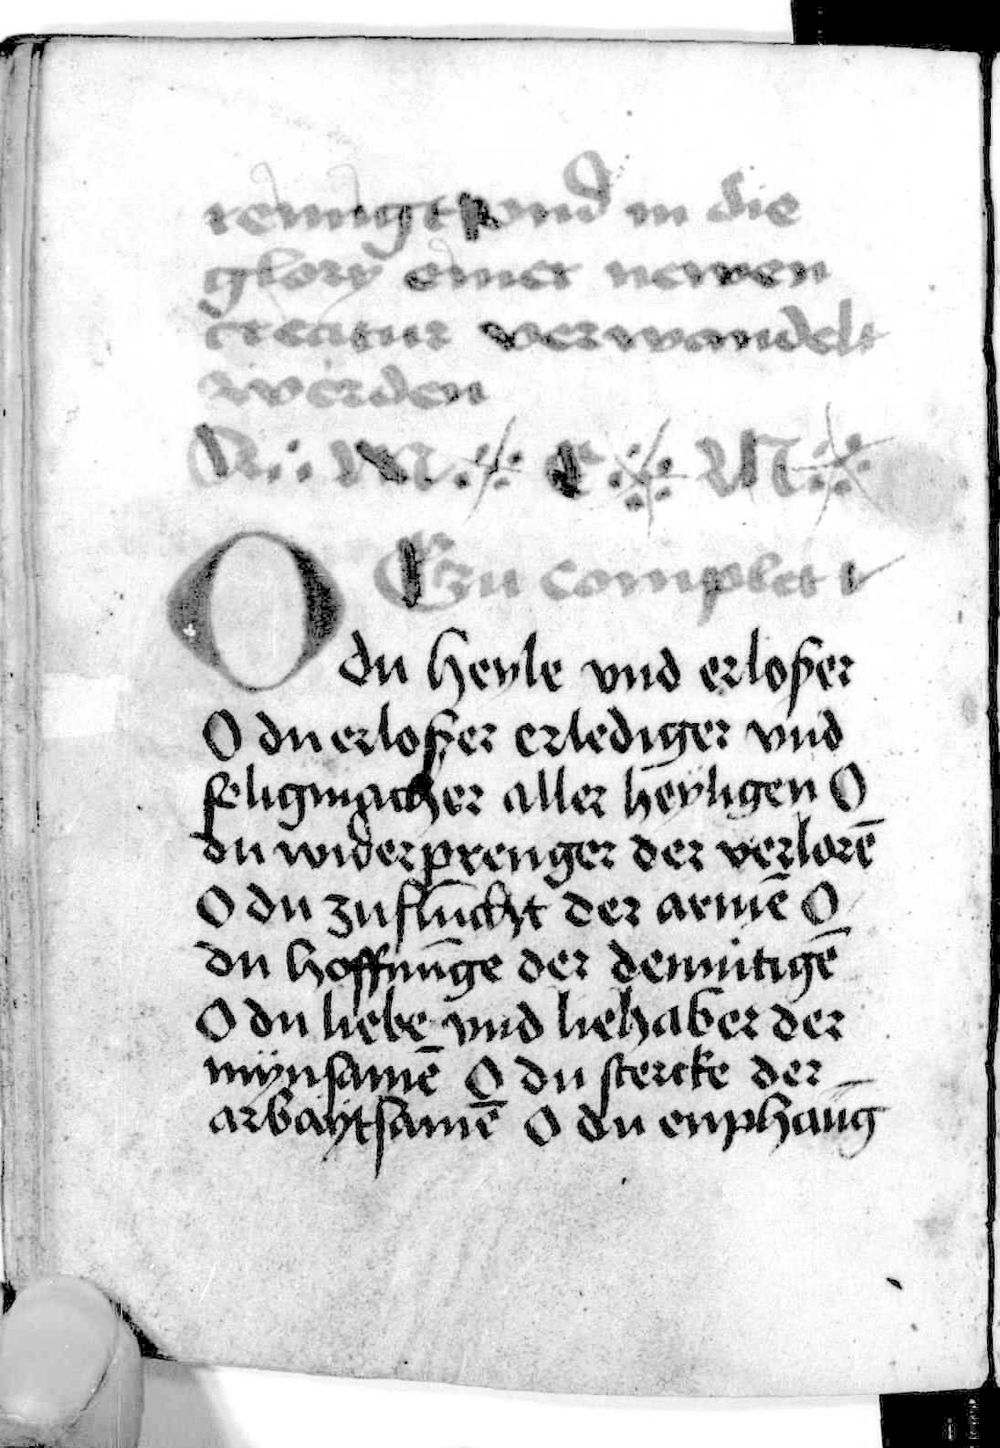 reinigt vnd in die
glory einer newen
creatur verwandelt
werden
A M E N
Zu complet
O du heyle vnd erloßer
O du erloßer erlediger vnd
seligmacher aller heyligen O
du widerprenger der verlorē
O du zuflucht der armē O
du hoffnūge der demutigē
O du liebe vnd liebhaber der
mynsamē O du stercke der
arbaytsamē O du enphaūg